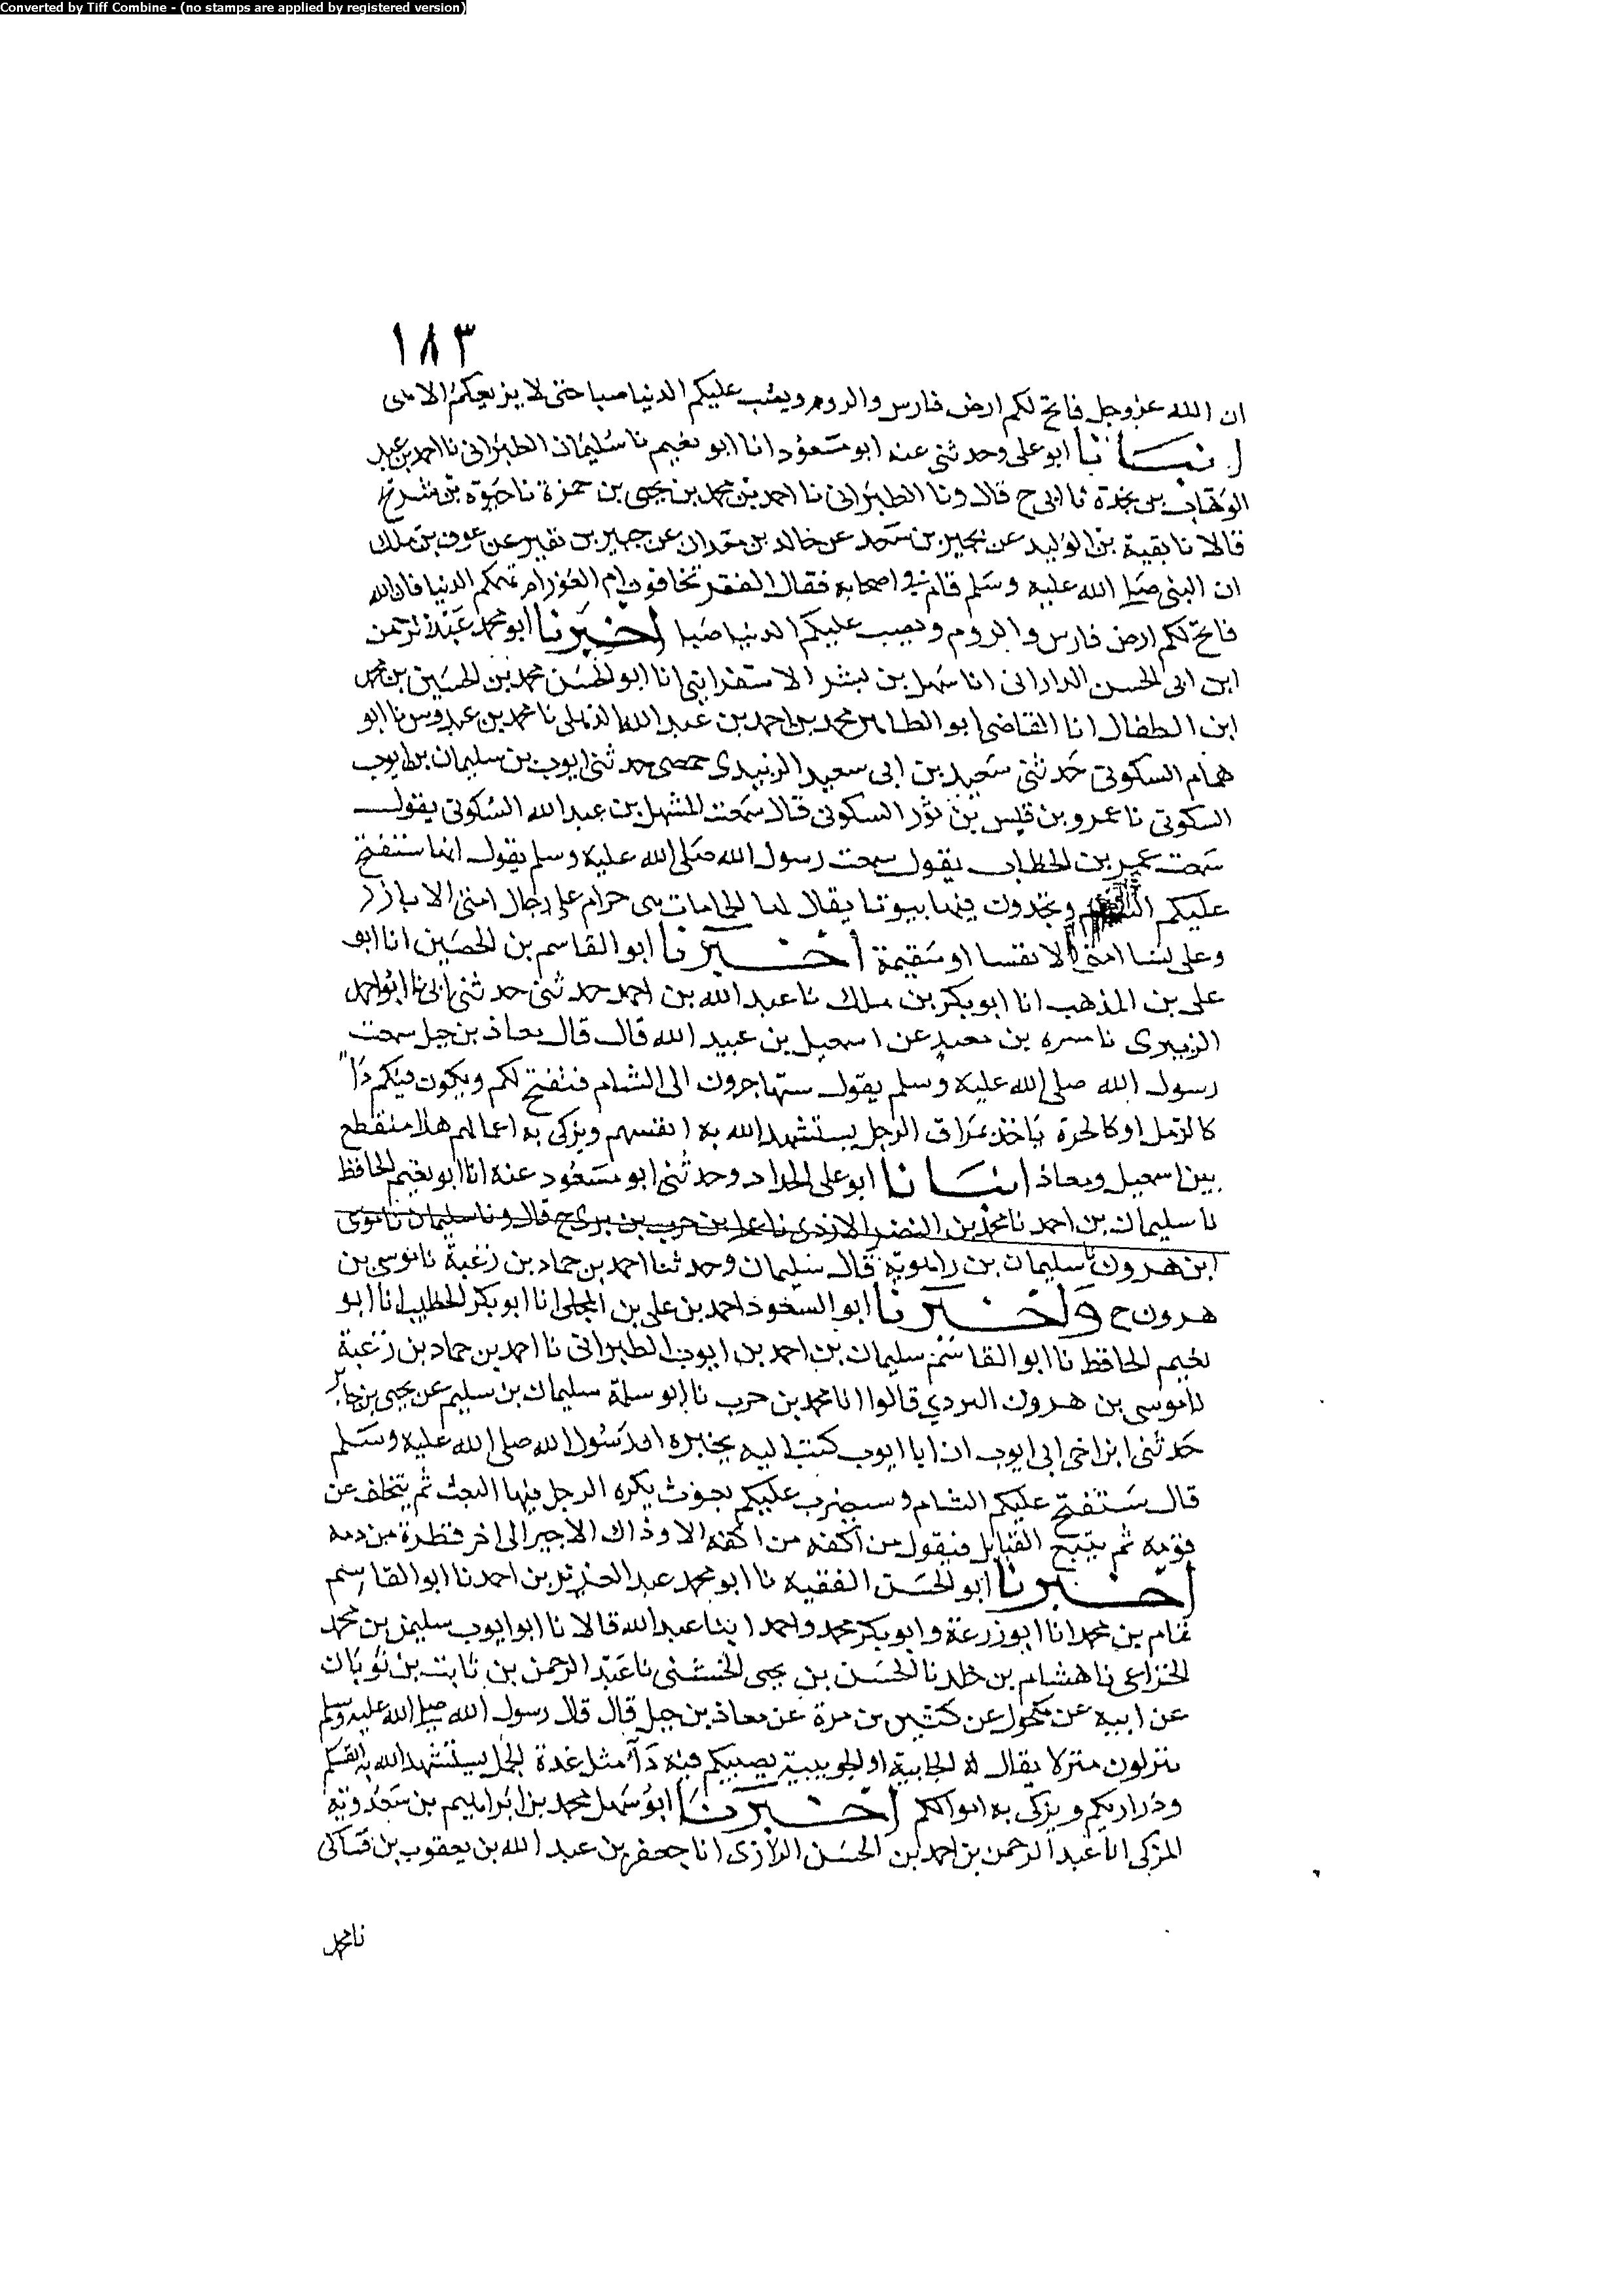 Converted by Tiff Combine - (no stamps are applied by registered version)
١٨٣
ان الله عزوجل فاتح لكم ارض فارس والروم ويصب عليكم الدنيا صبا حتى لا يزيعكم الا هى
انبانا ابو على وحدثنى عنه ابو مسعود انا ابو نعيم نا سليمان الطبرانى نا احمد بن عبد
الوهاب بن نجدة نا ابى ح قال ونا الطبرانى نا احمد بن محمد بن يحيى بن حمزة نا حيوة بن شريح
قالا نا بقية بن الوليد عن بحير بن سعد عن خالد بن معدان عن جبير بن نفير عن عوف بن ملك
ان النبى صلى الله عليه وسلم قام فى اصحابه فقال الفقر تخافون ام العوز ام تهمكم الدنيا فان الله
فاتح لكم ارض فارس والروم ويصب عليكم الدنيا صبا اخبرنا ابو محمد عبد الرحمن
ابن ابى الحسن الدارانى انا سهل بن بشر الاسفراينى انا ابو الحسن محمد بن الحسين بن محمد
ابن الطفال انا القاضى ابو الطاهر محمد بن احمد بن عبد الله الذهلى نا محمد بن عبدوس نا ابو
همام السكونى حدثنى سعيد بن ابى سعيد الزبيدى حمصى حدثنى ايوب بن سليمان بن ايوب
السكونى نا عمرو بن قيس بن ثور السكونى قال سمعت المشهل بن عبد الله السكونى يقول
سمعت عمر بن الخطاب يقول سمعت رسول الله صلى الله عليه وسلم يقول انها ستفتح
عليكم الشام وتجدون فيها بيوتا يقال لها الحمامات هى حرام على رجال امتى الا بازر
وعلى نسا امتى الا نفسا او سقيمة اخبرنا ابو القاسم بن الحصين انا ابو
على بن المذهب انا ابو بكر بن ملك نا عبد الله بن احمد حدثنى حدثنى ابى نا ابو احمد
الزبيرى نا مسره بن معبد عن اسمعيل بن عبيد الله قال قال معاذ بن جبل سمعت
رسول الله صلى الله عليه وسلم يقول ستهاجرون الى الشام فتفتح لكم ويكون فيكم دآ
كالدمل او كالحرة ياخذ بمراق الرجل يستشهد الله به انفسهم ويزكى به اعمالهم هذا منقطع
بين اسمعيل ومعاذ انبانا ابو على الحداد وحدثنى ابو مسعود عنه انا ابو نعيم الحافظ
نا سليمان بن احمد نا محمد بن النضر الازدى نا على بن حرب بن برى ح قال ونا سليمان نا موسى
ابن هرون نا سليمان بن راهويه قال سليمان وحدثنا احمد بن حماد بن زغبة نا موسى بن
هرون ح واخبرنا ابو السعود احمد بن على بن المجلى انا ابو بكر الخطيب انا ابو
نعيم الحافظ نا ابو القاسم سليمان بن احمد بن ايوب الطبرانى نا احمد بن حماد بن زغبة
نا موسى بن هرون البردي قالوا انا محمد بن حرب نا ابو سلمة سليمان بن سليم عن يحيى بن جابر
حدثنى ابن اخى ابى ايوب ان ابا ايوب كتب اليه يخبره ان رسول الله صلى الله عليه وسلم
قال ستفتح عليكم الشام وسيضرب عليكم بعوث يكره الرجل فيها البعث ثم يتخلف عن
قومه ثم يتبع القبايل فيقول من اكفه من اكفه الا وذاك الاجير الى اخر قطرة من دمه
اخبرنا ابو الحسن الفقيه نا ابو محمد عبد العزيز بن احمد نا ابو القاسم
تمام بن محمد انا ابو زرعة وابو بكر محمد واحمد ابنا عبد الله قالا نا ابو ايوب سليمن بن محمد
الخزاعى نا هشام بن خلد نا الحسن بن يحيى الخشنى نا عبد الرحمن بن ثابت بن ثوبان
عن ابيه عن مكحول عن كثير بن مرة عن معاذ بن جبل قال قال رسول الله صلى الله عليه وسلم
تنزلون منزلا يقال له الجابية او الجويبية يصيبكم فيه دآ مثل غدة الجمل يستشهد الله به انفسكم
وذراريكم ويزكى به اموالكم اخبرنا ابو سهل محمد بن ابراهيم بن سعدويه
المزكى انا عبد الرحمن بن احمد بن الحسن الرازى انا جعفر بن عبد الله بن يعقوب بن فناكى
نا محمد